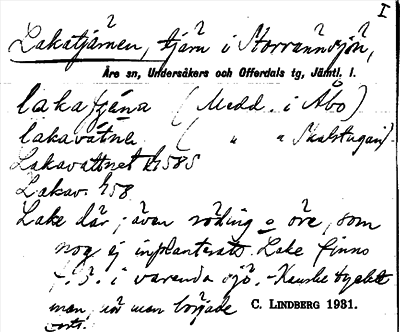 I
Lakatjärnen, tjärn i Storrännsjön,
Åre sn, Undersåkers och Offerdals tg, Jämtl. l.
lakafjäna (Medd. i Åbo)
lakavátnε ( " " Skalstugan).
Lakavattnet
Lakav.
Lake där, även röding o öre, som
nog ej inplanterats. Lake finns
f. ö. i varenda sjö. - Kanske tyckte
man, när man började
C. LINDBERG 1931.